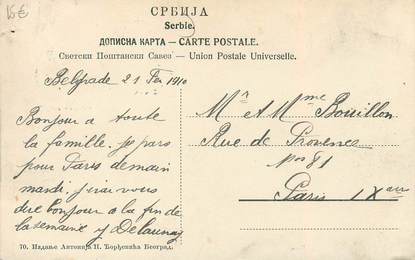 15€
СРБИЈА
Serbie.
ДОПИСНА КАРТА — CARTE POSTALE.
Светски Поштански Савез — Union Postale Universelle.
Belgrade 21 Fev 1910
Bonjour a toute
la famille. Je pars
pour Paris demain
mardi. J'irai vous
dire bonjour a la fin de
la semaine y Delaunay
Mr et Mme Bouillon
Rue de Provence
No 81
Paris IX arr
70. Издање Антонија П. Ђорђевића Београд.